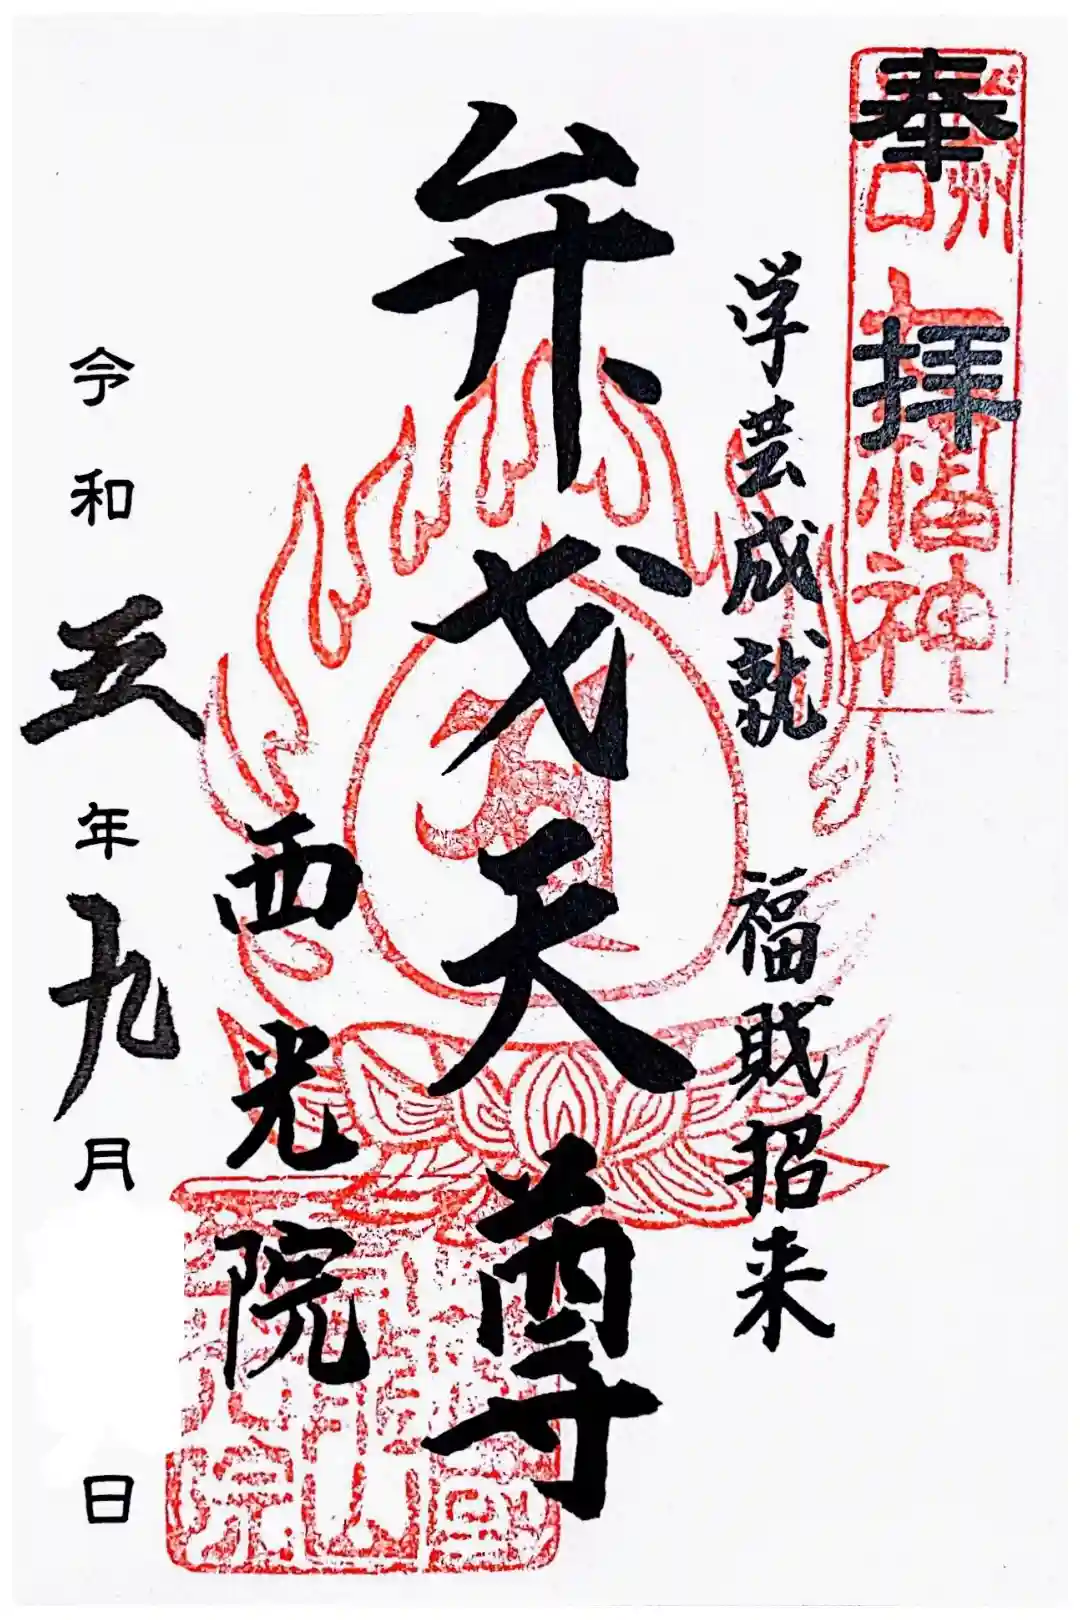 奉拝
学芸成就 福財招来
弁才天尊
西光院
令和五年九月 日